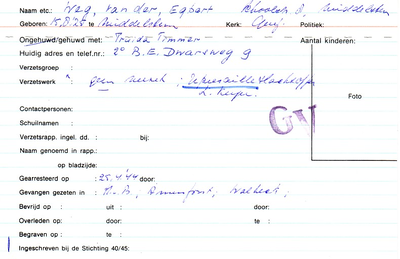 Naam etc.: Weg, van der, Egbert Schoolstr 8, Middelstum
Geboren: te Middelstum Kerk: Politiek:
Ongehuwd/gehuwd met: Truida Timmer Aantal kinderen:
Huidig adres en telef.nr.: 2e B.E. Dwarsweg 9
Verzetsgroep :
Verzetswerk : geen
Foto
Contactpersonen:
Schuilnamen :
GV
Verzetsrapp. ingel. dd. : bij:
Naam genoemd in rapp.:
op bladzijde:
Gearresteerd op : 25.4.'44 door:
Gevangen gezeten in : Amersfoort;
Bevrijd op : uit : door:
Overleden op: door: te :
Begraven op : te :
Ingeschreven bij de Stichting 40/45: